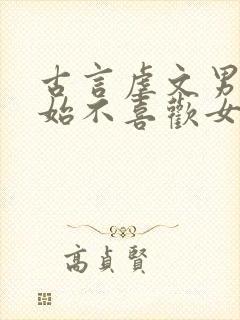 古言虐文男
始不喜歡女
高貞賢